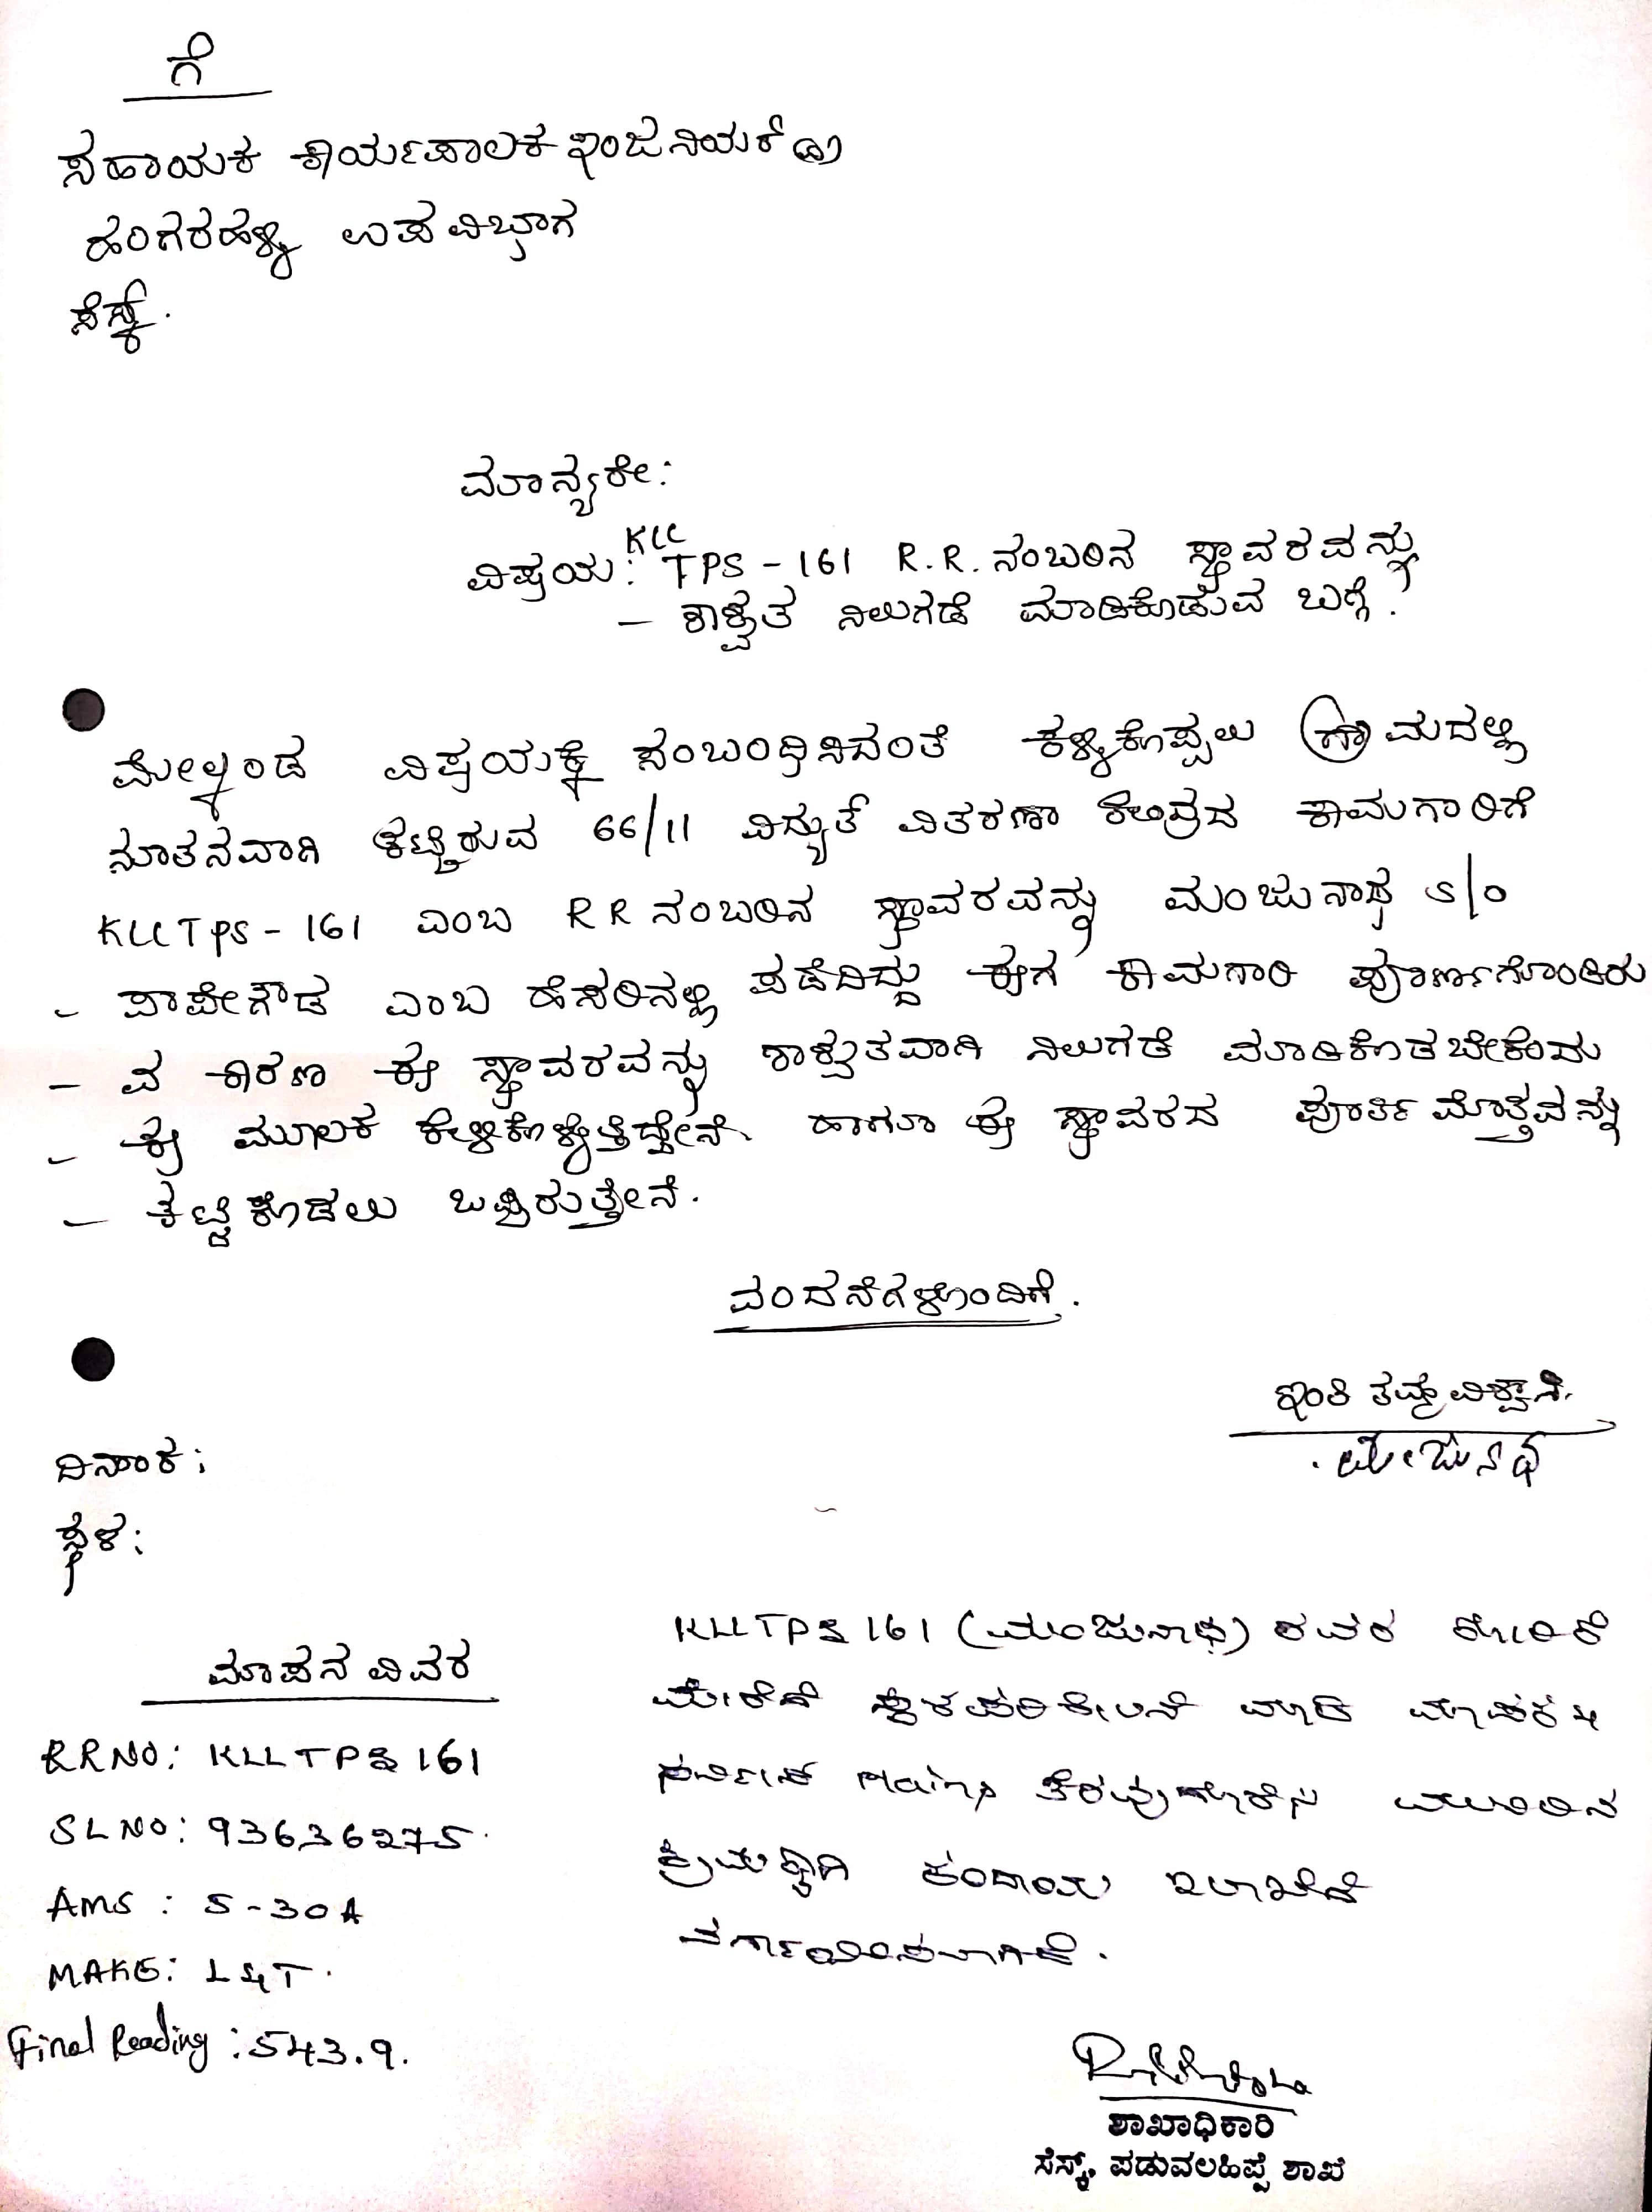 ಗೆ
ಸಹಾಯಕ ಕಾರ್ಯಪಾಲಕ ಇಂಜಿನಿಯರ್ (ವಿ)
ಹಂಗರಹಳ್ಳಿ ಉಪವಿಭಾಗ
ಸೆಸ್ಕ್.
ಮಾನ್ಯರೇ:
ವಿಷಯ: KLL TPS - 161 R.R. ನಂಬರಿನ ಸ್ಥಾವರವನ್ನು
- ಶಾಶ್ವತ ನಿಲುಗಡೆ ಮಾಡಿಕೊಡುವ ಬಗ್ಗೆ.
ಮೇಲ್ಕಂಡ ವಿಷಯಕ್ಕೆ ಸಂಬಂಧಿಸಿದಂತೆ ಕಳ್ಳಿಕೊಪ್ಪಲು ಗ್ರಾಮದಲ್ಲಿ
ನೂತನವಾಗಿ ಕಟ್ಟಿರುವ 66/11 ವಿದ್ಯುತ್ ವಿತರಣಾ ಕೇಂದ್ರದ ಕಾಮಗಾರಿಗೆ
KLLTPS - 161 ಎಂಬ RR ನಂಬರಿನ ಸ್ಥಾವರವನ್ನು ಮಂಜುನಾಥ S/O
- ಪಾಪೇಗೌಡ ಎಂಬ ಹೆಸರಿನಲ್ಲಿ ಪಡೆದಿದ್ದು ಈಗ ಕಾಮಗಾರಿ ಪೂರ್ಣಗೊಂಡಿರು
- ವ ಕಾರಣ ಈ ಸ್ಥಾವರವನ್ನು ಶಾಶ್ವತವಾಗಿ ನಿಲುಗಡೆ ಮಾಡಿಕೊಡಬೇಕೆಂದು
- ಈ ಮೂಲಕ ಕೇಳಿಕೊಳ್ಳುತ್ತಿದ್ದೇನೆ. ಹಾಗೂ ಈ ಸ್ಥಾವರದ ಪೂರ್ತಿ ಮೊತ್ತವನ್ನು
- ಕಟ್ಟಿಕೊಡಲು ಒಪ್ಪಿರುತ್ತೇನೆ.
ವಂದನೆಗಳೊಂದಿಗೆ.
ಇಂತಿ ತಮ್ಮ ವಿಶ್ವಾಸಿ.
ಮಂಜುನಾಥ
ದಿನಾಂಕ:
ಸ್ಥಳ:
ಮಾಪನ ವಿವರ
RRNO: KLLTPS 161
SLNO: 93636275.
AMS : 5-30A
MAKE: L&T.
Final Reading : 543.9.
KLLTPS 161 (ಮಂಜುನಾಥ) ರವರ ಕೋರಿಕೆ
ಮೇರೆಗೆ ಸ್ಥಳಪರಿಶೀಲನೆ ಮಾಡಿ ಮಾಪಕ &
ಸರ್ವಿಸ್ Mains ತೆರವುಗೊಳಿಸಿ ಮುಂದಿನ
ಕ್ರಮಕ್ಕಾಗಿ ಕಂದಾಯ ಶಾಖೆಗೆ
ವರ್ಗಾಯಿಸಲಾಗಿದೆ.
ಶಾಖಾಧಿಕಾರಿ
ಸೆಸ್ಕ್, ಪಡುವಲಹಿಪ್ಪೆ ಶಾಖೆ